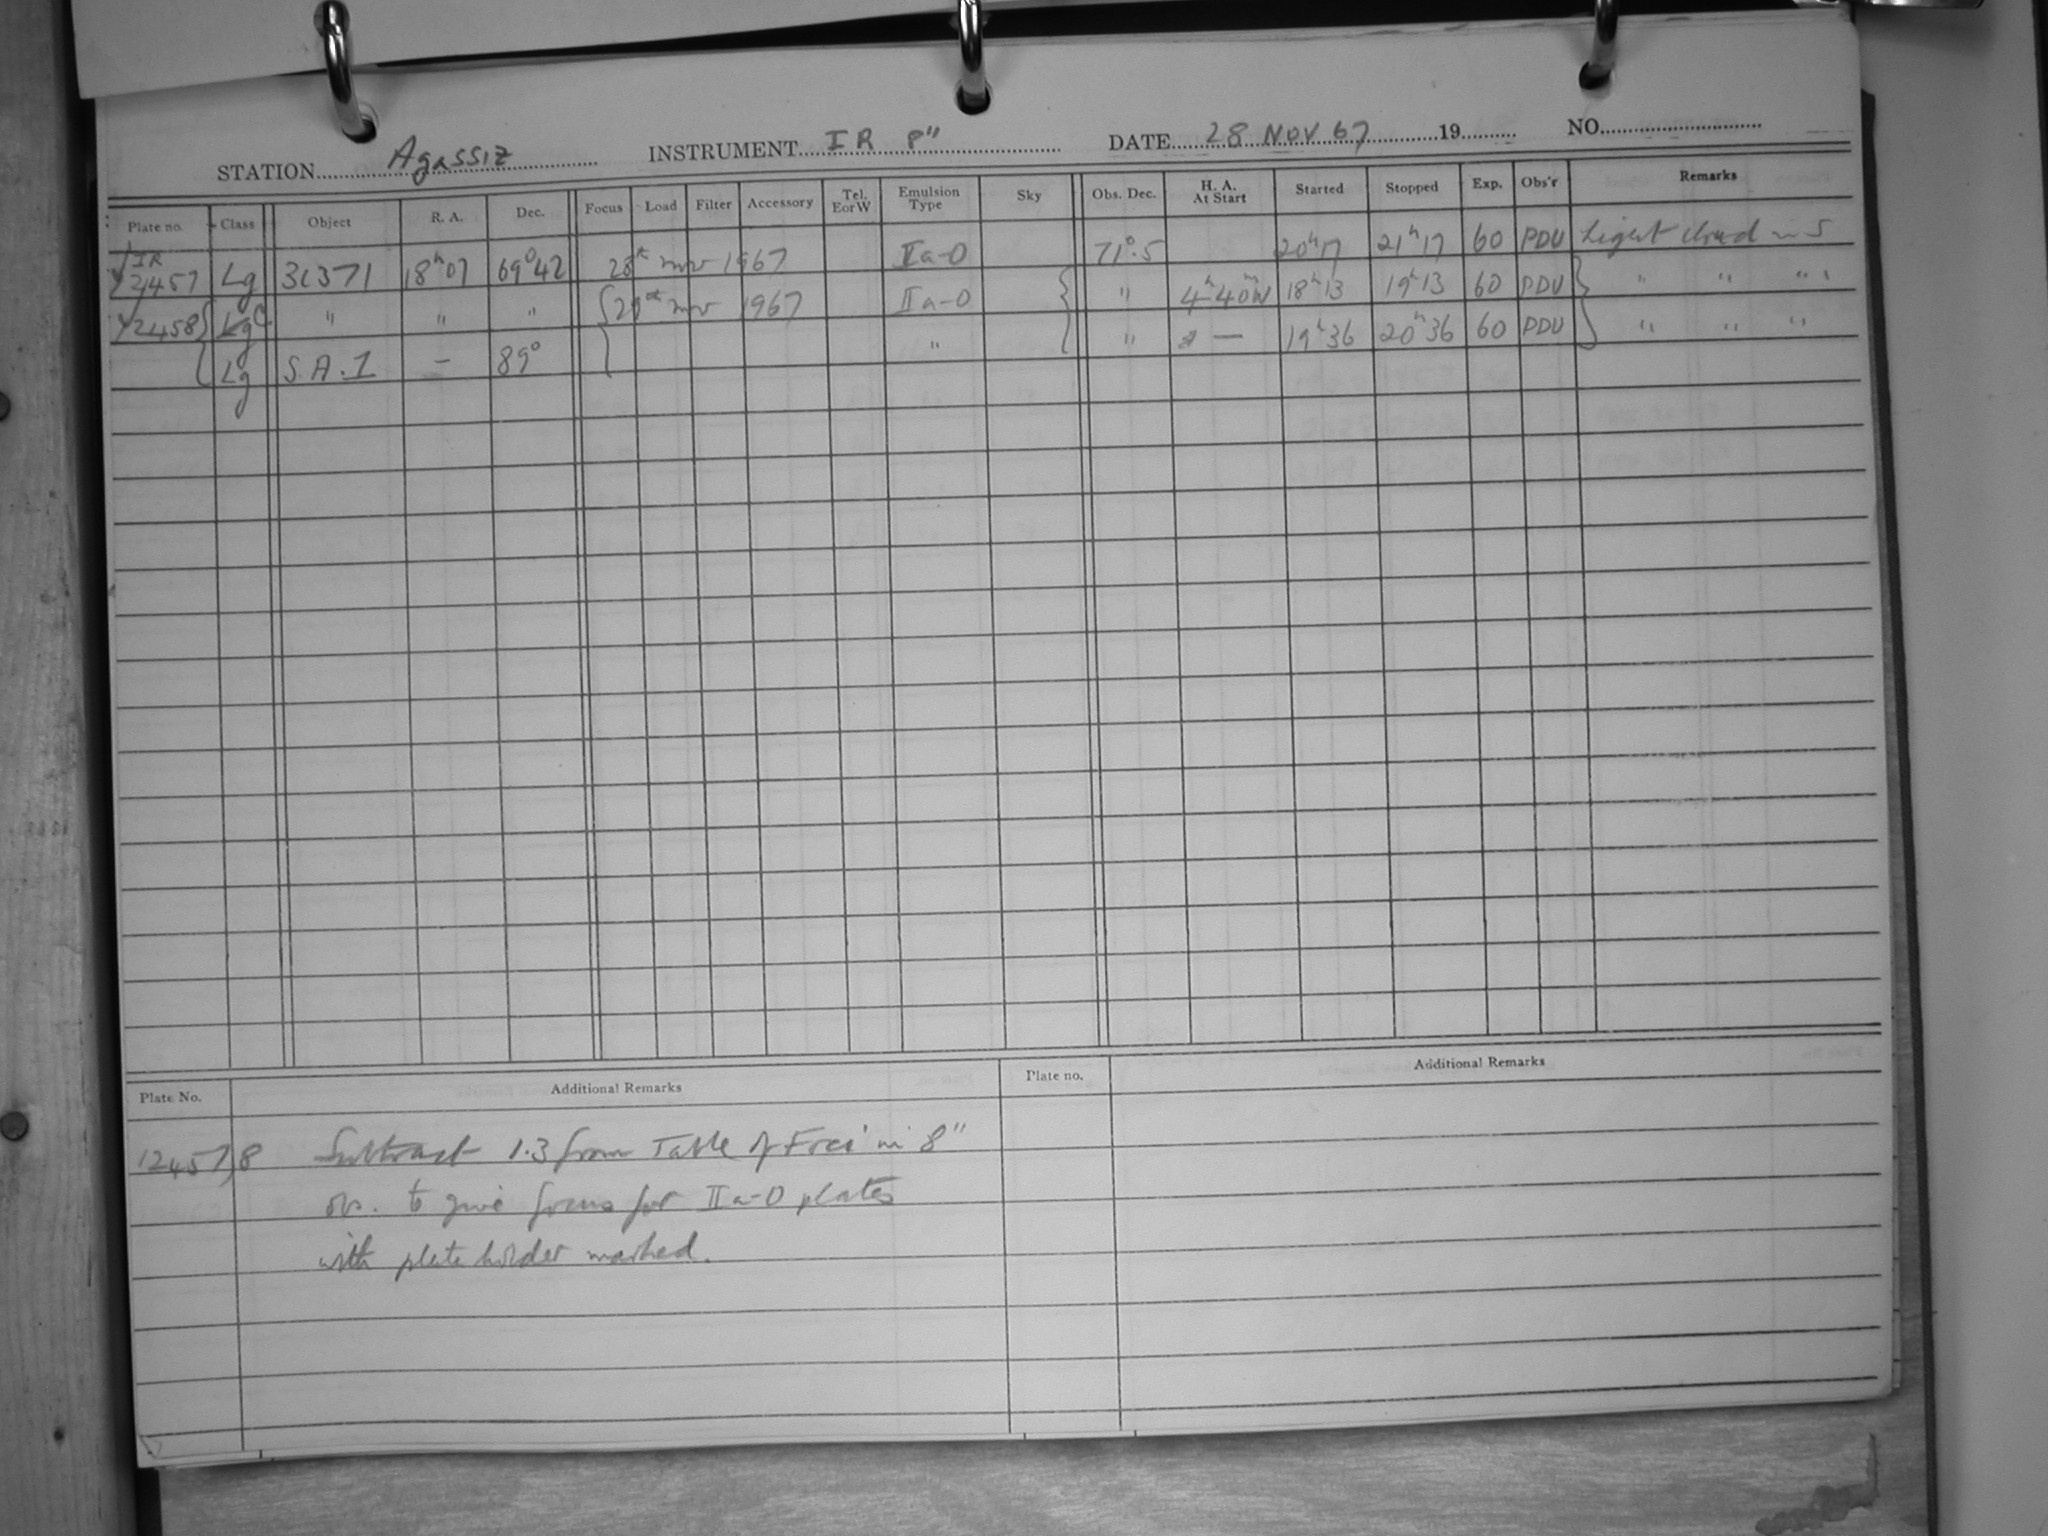 STATION Agassiz INSTRUMENT IR 8" DATE 28 NOV 67 19 NO.
Plate no. Class Object R. A. Dec. Focus Load Filter Accessory Tel. E or W Emulsion Type Sky Obs. Dec. H. A. At Start Started Stopped Exp. Obs'r Remarks
IR
12457 Lg 3C371 18h07 69°42 28th Nov 1967 IIa-O 71°.5 20h17 21h17 60 PDU Light cloud in S
12458 Lg " " " 29th Nov 1967 IIa-O " 4h40mW 18h13 19h13 60 PDU " " " "
Lg S.A.1 — 89° " " — 19h36 20h36 60 PDU " " "
Plate No. Additional Remarks Plate no. Additional Remarks
12457,8 Subtract 1.3 from Table of Foci in 8"
obs. to give focus for IIa-O plates
with plate holder marked.